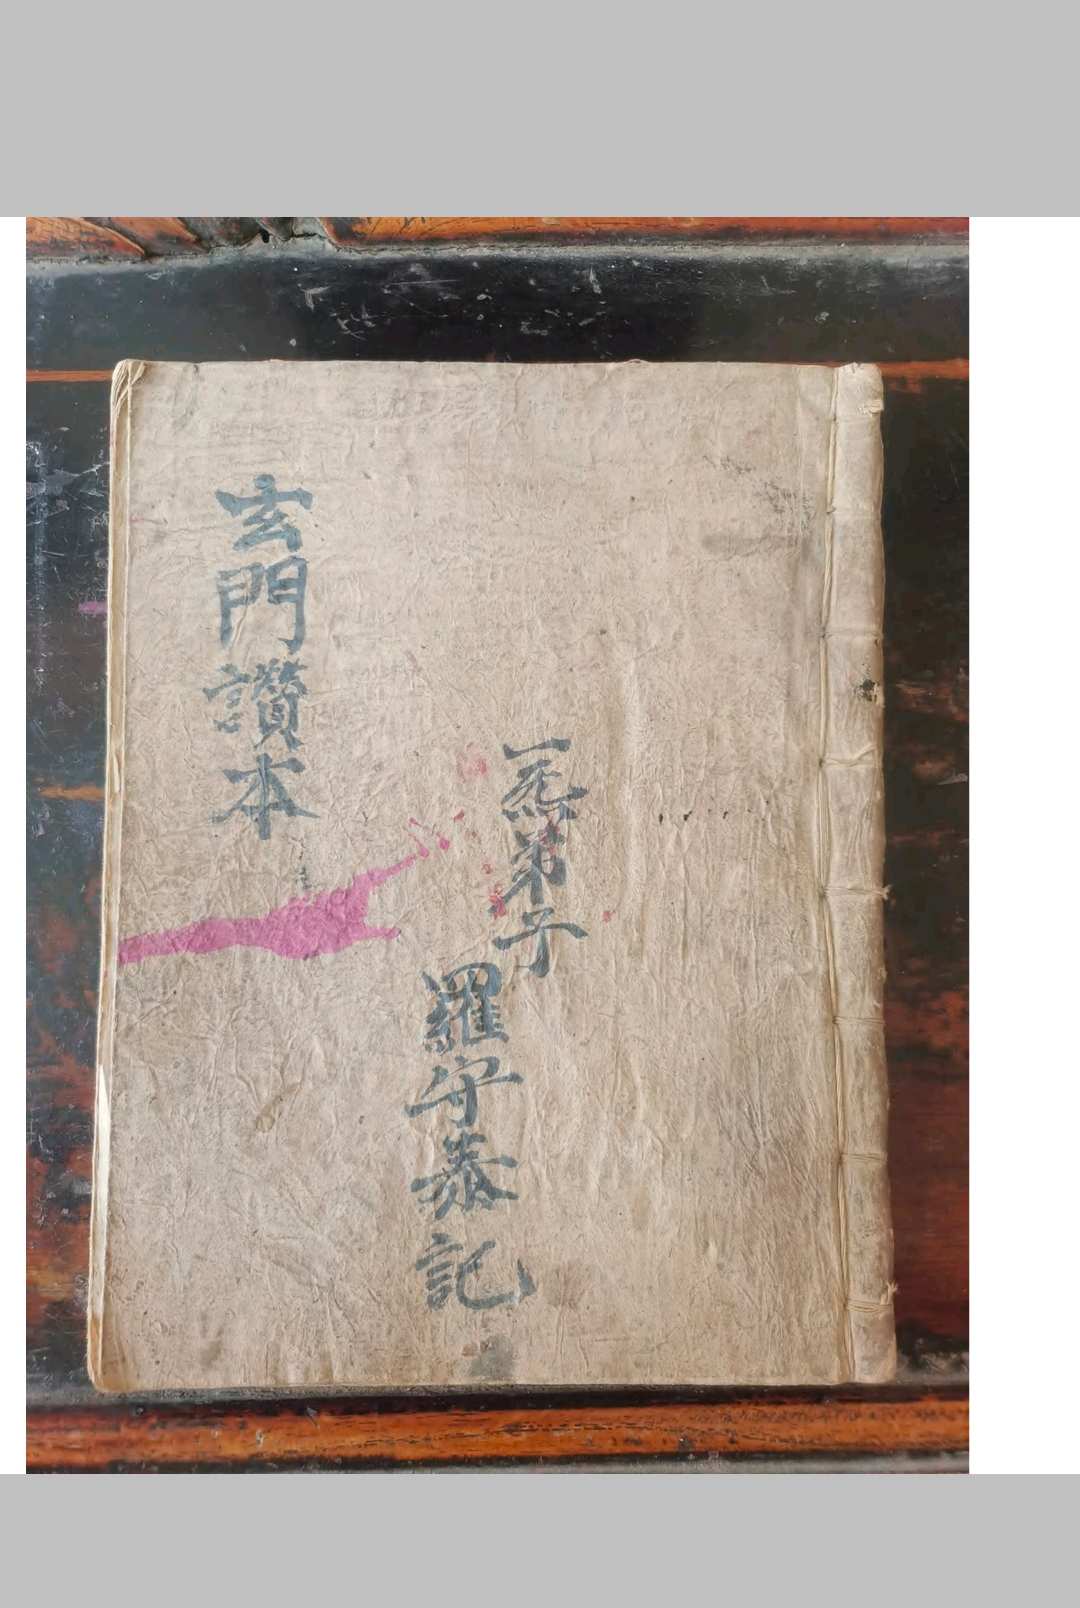 一炁弟子
羅守泰記
玄門讚本